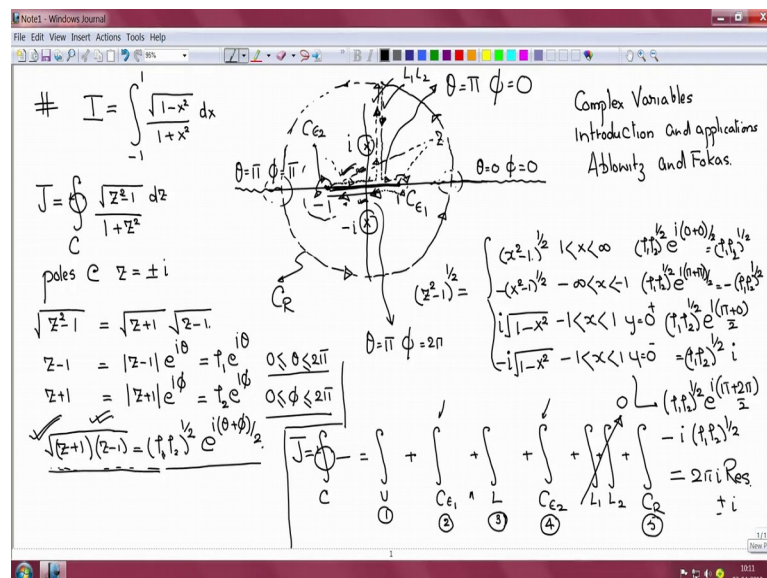 Note1 - Windows Journal
File Edit View Insert Actions Tools Help
95%
# I = ∫_{-1}^{1} √(1-x²)/(1+x²) dx
J = ∮_C √(z²-1)/(1+z²) dz
poles @ z = ±i
√(z²-1) = √(z+1) √(z-1)
z-1 = |z-1| e^{iθ} = ρ₁e^{iθ} 0≤θ≤2π
z+1 = |z+1| e^{iϕ} = ρ₂e^{iϕ} 0≤ϕ≤2π
√((z+1)(z-1)) = (ρ₁ρ₂)^{1/2} e^{i(θ+ϕ)/2}
L₁ L₂
θ=π ϕ=0
C_{ε2}
i
z
θ=π ϕ=π
θ=0 ϕ=0
-1
1
C_{ε1}
-i
C_R
θ=π ϕ=2π
Complex Variables
Introduction and applications
Ablowitz and Fokas.
(z²-1)^{1/2} =
(x²-1)^{1/2} 1<x<∞ (ρ₁ρ₂)^{1/2} e^{i(0+0)/2} = (ρ₁ρ₂)^{1/2}
-(x²-1)^{1/2} -∞<x<-1 (ρ₁ρ₂)^{1/2} e^{i(π+π)/2} = -(ρ₁ρ₂)^{1/2}
i√(1-x²) -1<x<1 y=0⁺ (ρ₁ρ₂)^{1/2} e^{i(π+0)/2}
-i√(1-x²) -1<x<1 y=0⁻ = (ρ₁ρ₂)^{1/2} i
(ρ₁ρ₂)^{1/2} e^{i(π+2π)/2}
-i(ρ₁ρ₂)^{1/2}
J = ∮_C = ∫_U + ∫_{C_{ε1}} + ∫_L + ∫_{C_{ε2}} + ∫_{L₁} ∫_{L₂} + ∫_{C_R} = 2πi Res
0
±i
① ② ③ ④ ⑤
1/1
New P
1
10:11